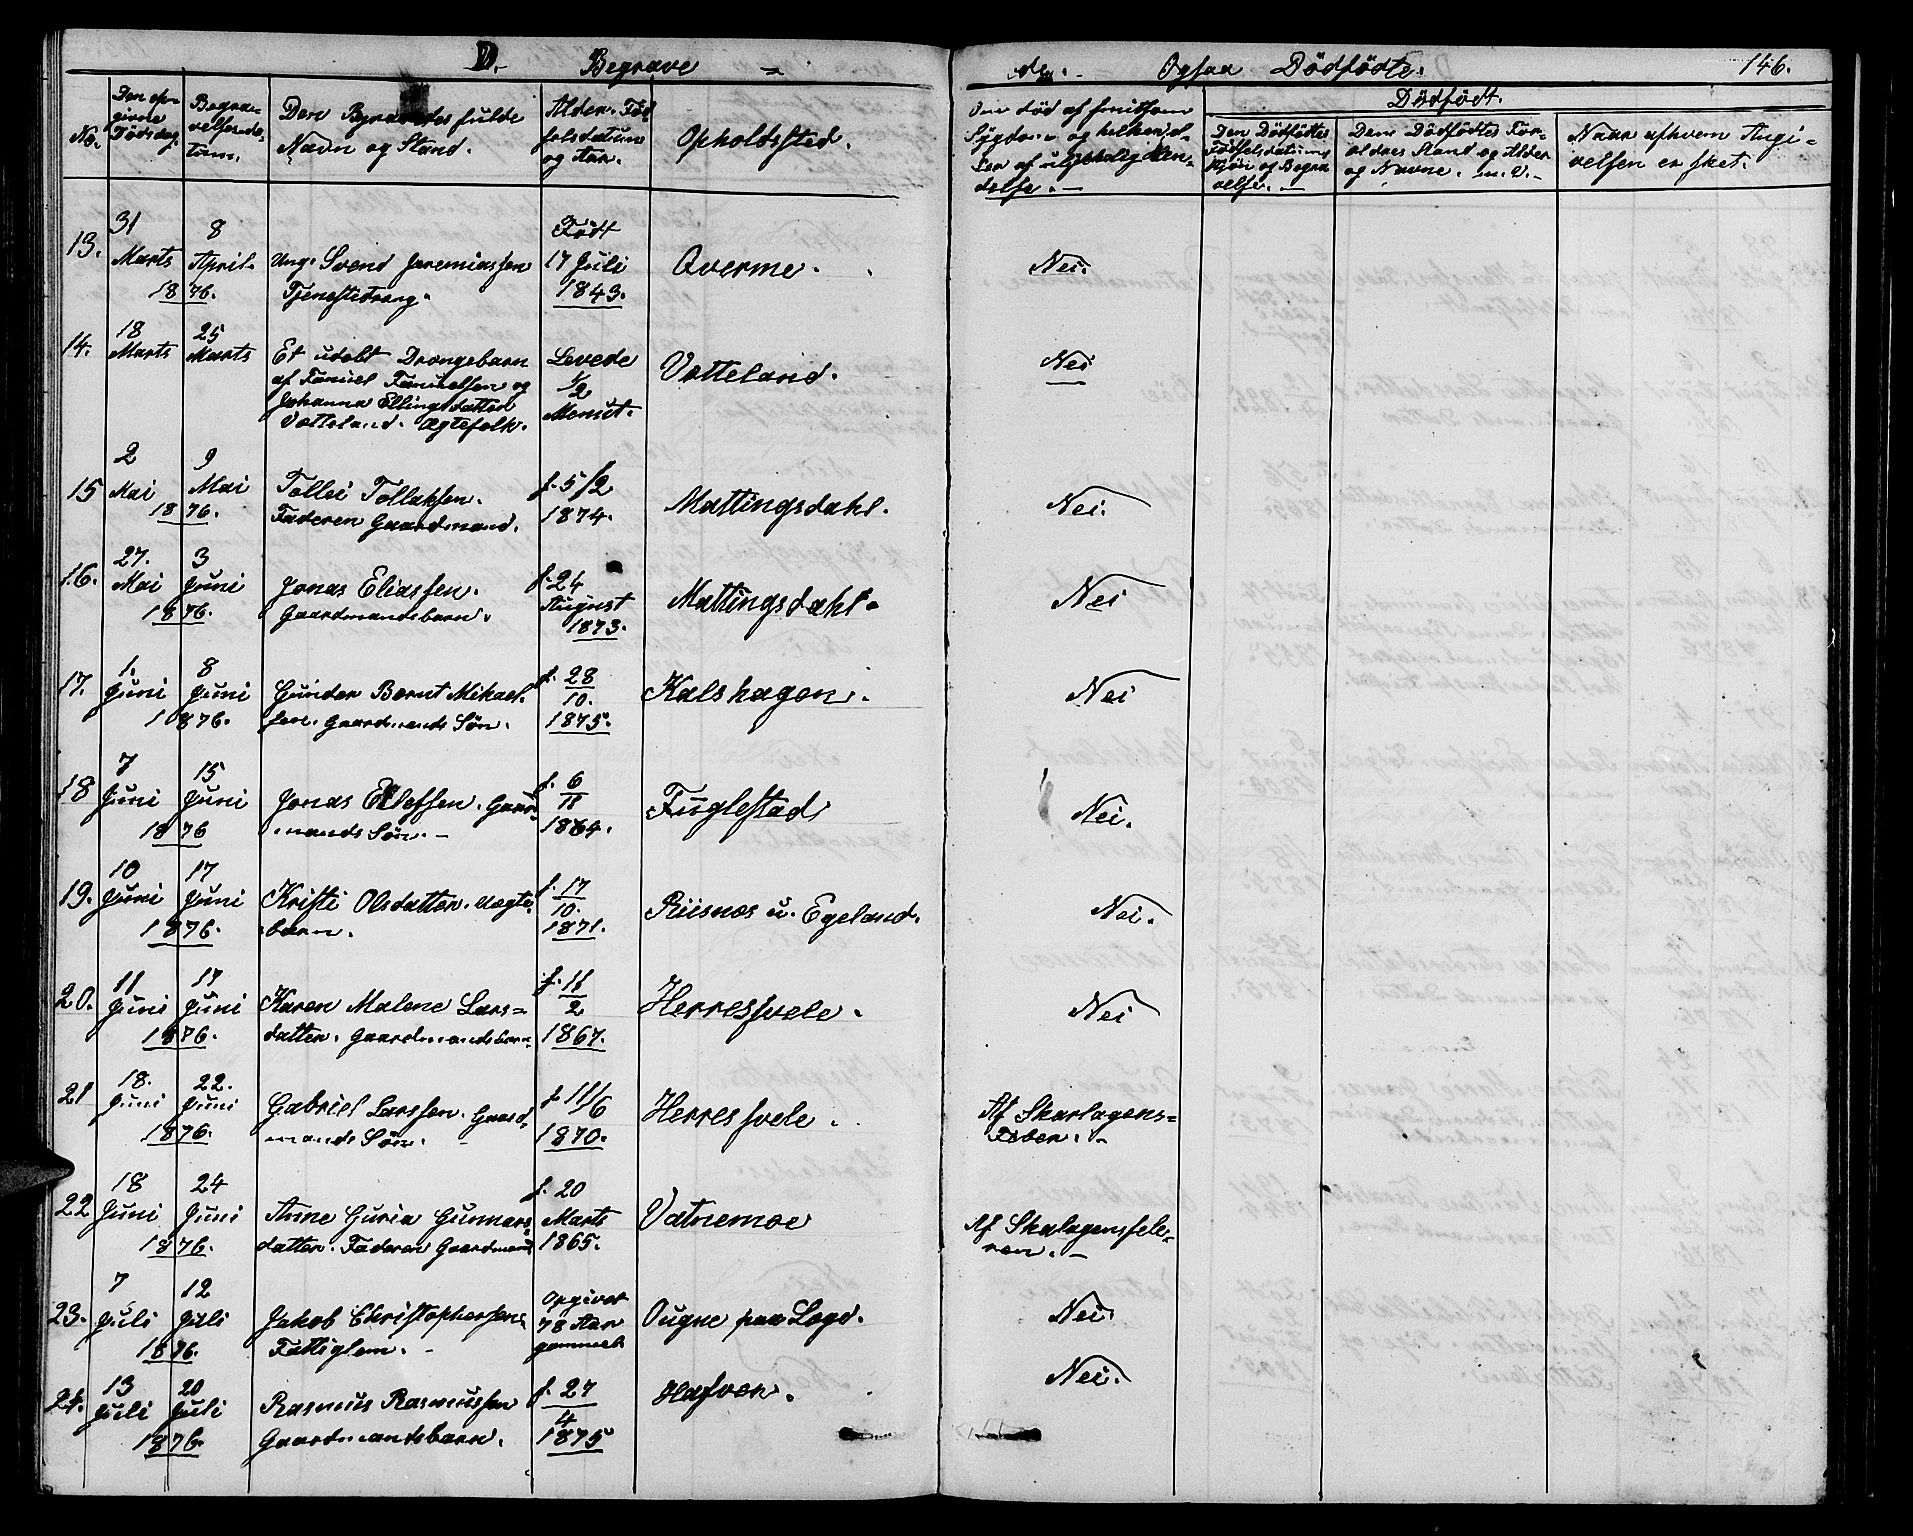 D. Begrave = de. Ogsaa Dödfödte. 146.
No.
Den op-
givne
Dödsdag.
Begra-
velsesda-
tum.
Den Begravedes fulde
Navn og Stand.
Alder. Fød
selsdatum
og Aar.
Opholdssted.
Om död af smitsom
Sygdom og hvilken, el-
ler af ulykkelig Hæn-
delse. -
Dödfödt.
Den Dödfödtes
Födselsdatum,
Kjön og Begra
velse. -
Dens Dödfödtes For-
ældres Stand og Alder
og Navne. m.v.-
Naar afhvem Angi-
velsen er sket.
13. 31 Marts 8 April 1876.
Ung. Svend Jeremiassen
Tjenestedreng.
Födt
17 Juli
1843.
Qverme. Nei.
14. 18 Marts 25 Marts
Et udöbt Drengebarn
af Tønnel Tønnelsen og
Johanna Ellingsdatter
Vatteland. Ægtefolk.
Levede
1/2
Menut.
Vatteland. Nei
15 2 Mai 9 Mai 1876.
Tollei Tollaksen.
Faderen Gaardmand.
f. 5/2
1874.
Mattingsdahl. Nei.
16. 27. Mai 3 Juni 1876.
Jonas Eliassen.
Gaardmandsbarn.
f. 24
August
1873.
Mattingsdahl. Nei
17. 1. Juni 8 Juni 1876.
Gunder Bernt Mikael-
sen. Gaardmands Sön.
f. 28
10.
1875.
Kalshagen. Nei
18 7 Juni 15 Juni 1876
Jonas Ellefsen. Gaar-
mands Sön. -
f. 6
11
1864.
Fuglestad Nei.
19. 10 Juni 17 Juni 1876.
Kristi Olsdatter. Uægte-
barn.
f. 17
10.
1871.
Riisnes u. Egeland. Nei.
20. 11 Juni 17 Juni 1876.
Karen Malene Lars=
datter. Gaardmandsbarn
f. 11
2
1867.
Herresvele. Nei
21 18. Juni 22. Juni 1876.
Gabriel Larssen. Gaard-
mands Sön.
f 11/6
1870.
Herresvele.
Af Skarlagens=
Feber. -
22 18 Juni 24 Juni 1876.
Anne Guria Gunnars
datter. Faderen Gaardmand
f. 20
Marts
1865.
Vatnemoe
Af Skalagensfebe-
ren. -
23. 7 Juli 12 Juli 1876.
Jakob Christophersen
Fattiglem. -
Opgivet
78 Aar
gammel
Ougne paa Lægd. Nei.
24. 13 Juli 20 Juli 1876.
Rasmus Rasmussen
Gaardmandsbarn.
f. 27
4
1875
Hafven. Nei.